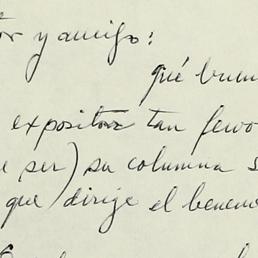 tor y amigo:
qué buen
expositor tan fervo
e ser) su columna s
que dirige el benem